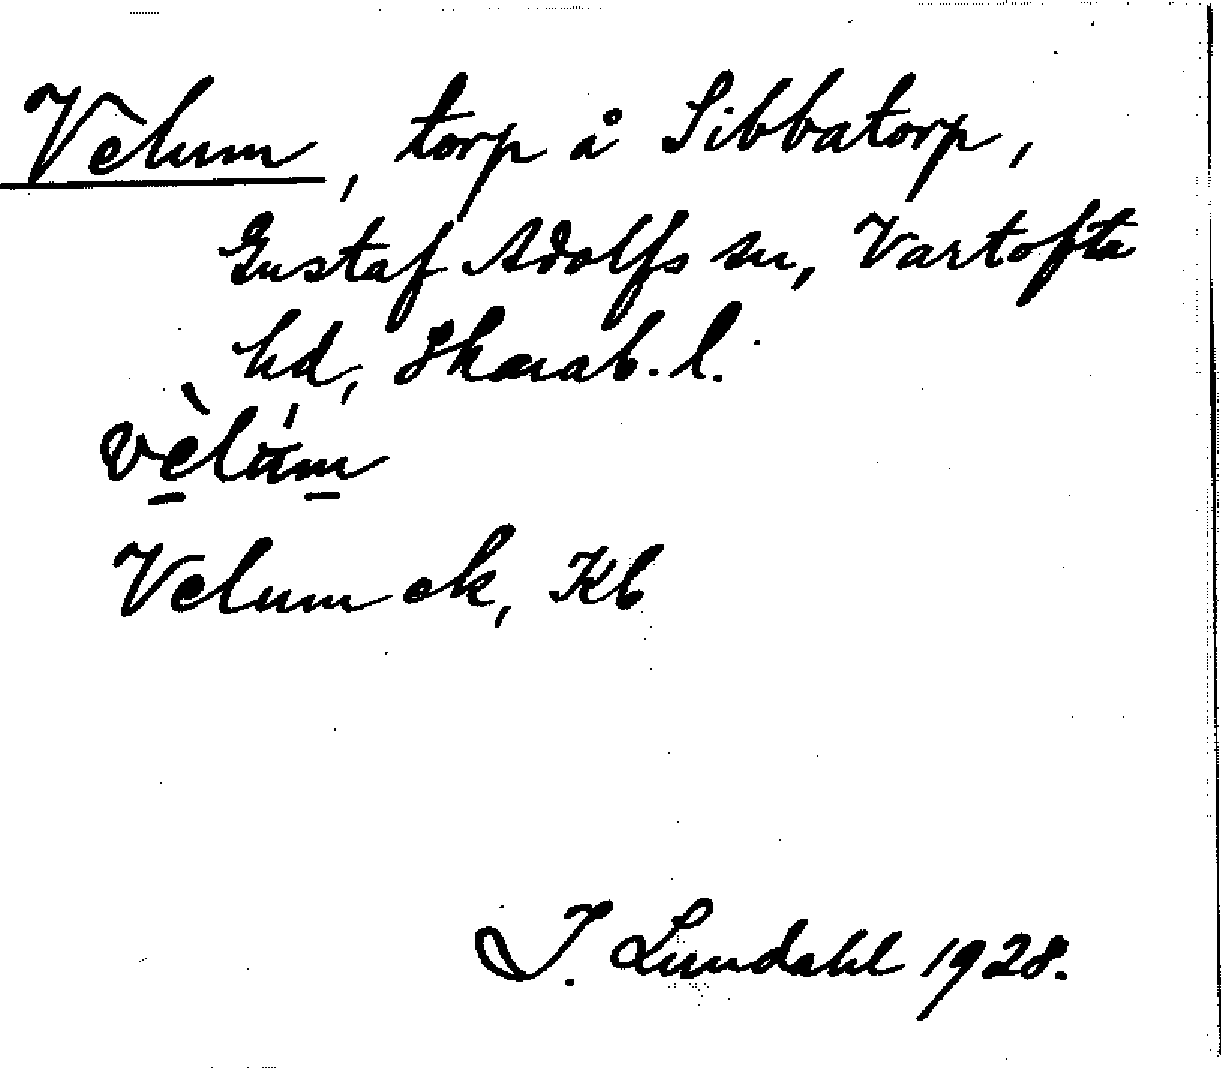 Velum, torp å Sibbatorp,
Gustaf Adolfs sn, Vartofta
hd, Skarab. l.
vèlu̇m
Velum ek, Kb
I. Lundahl 1928.